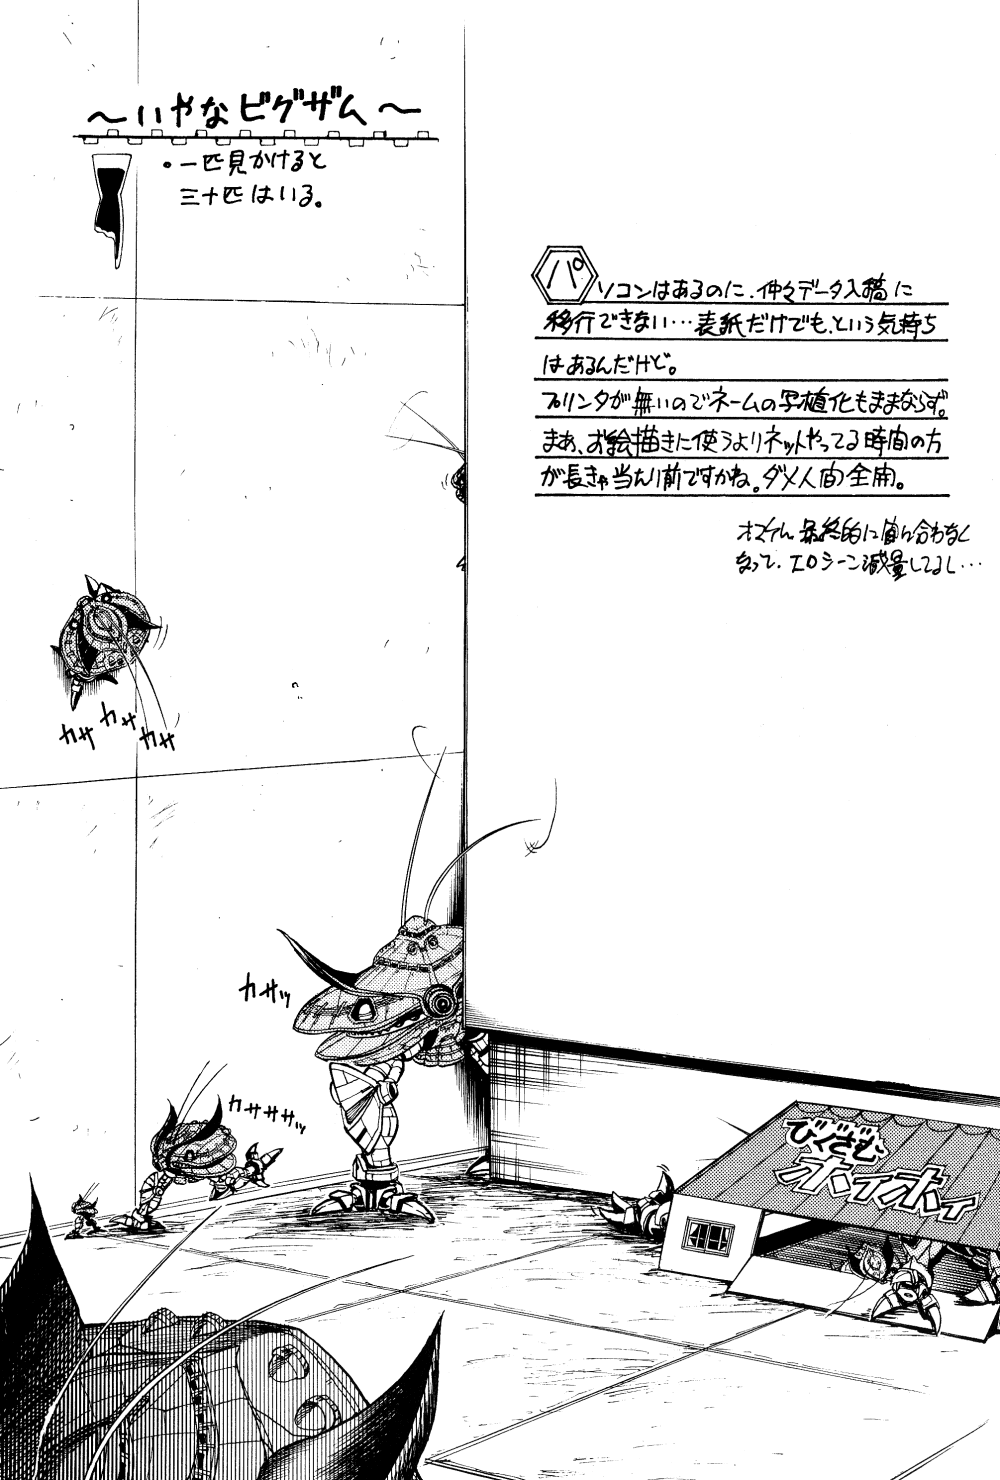 ～いやなビグザム～
・一匹見かけると
三十匹はいる。
パソコンはあるのに、仲々データ入稿に
移行できない…表紙だけでも、という気持ち
はあるんだけど。
プリンタが無いのでネームの写植化もままならず。
まあ、お絵描きに使うよりネットやってる時間の方
が長きゃ当たり前ですかね。ダメ人間全開。
オマケに最終的に間に合わなく
なって、エロシーン減量してるし…
カサ カサ カサ
カサッ
カササササッ
びぐざむ
ホイホイ